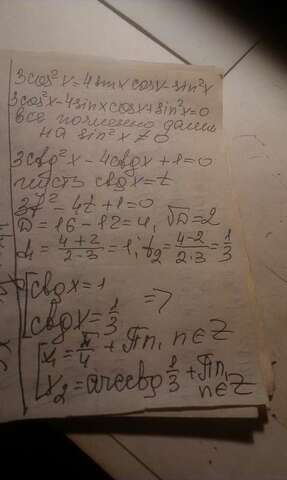 3cos²x=4sinx cosx-sin²x
3cos²x-4sinx cosx+sin²x=0
все почленно делим
на sin²x≠0
3ctg²x-4ctgx+1=0
пусть ctgx=t
3t²=4t+1=0
D=16-12=4, √D=2
t₁=(4+2)/(2·3)=1, t₂=(4-2)/(2·3)=1/3
[ctgx=1
ctgx=1/3 =>
[x₁=π/4+πn, n∈Z
x₂=arcctg 1/3+πn,
n∈Z